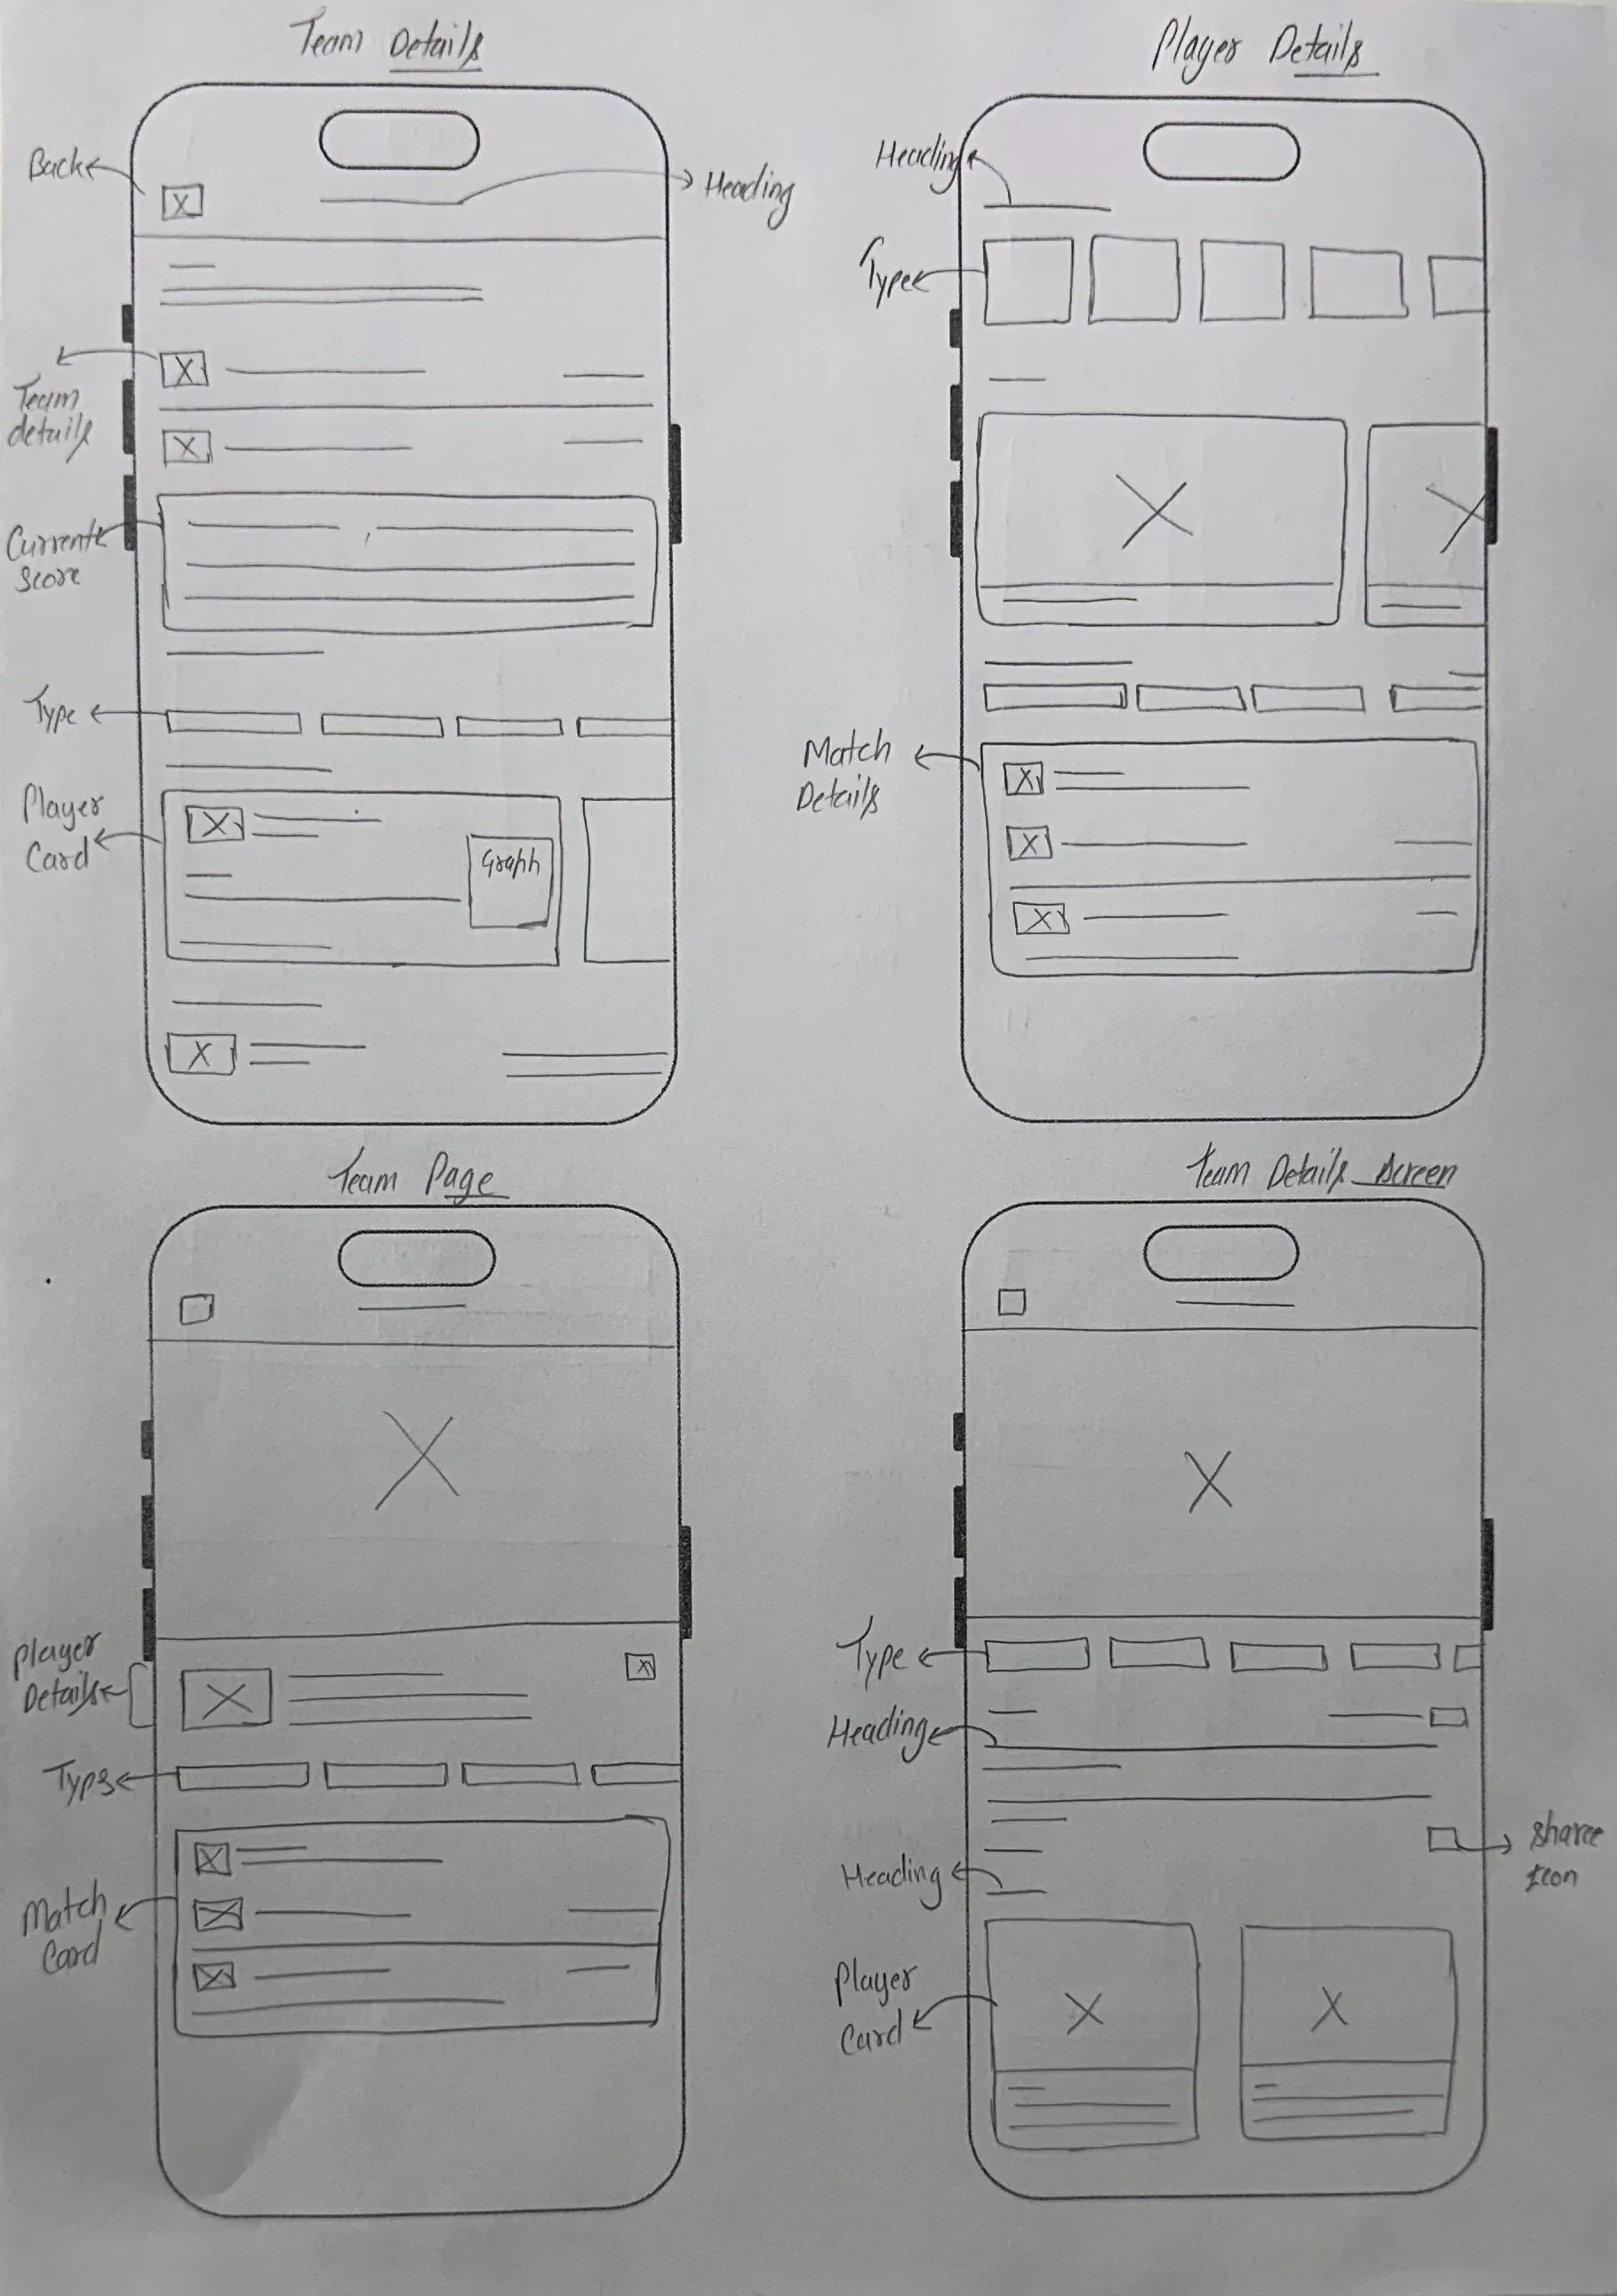 Team Details
Back
Heading
Team
details
Current
Score
Type
Player
Card
Graph
Player Details
Heading
Type
Match
Details
Team Page
Player
Details
Types
Match
Card
Team Details Screen
Type
Heading
Heading
Share
Icon
Player
Card